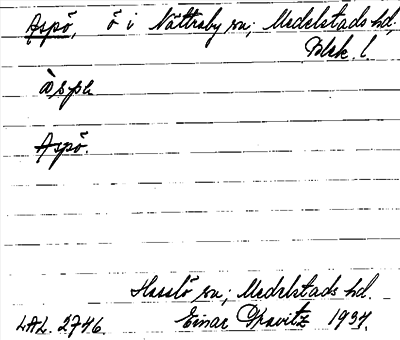 Aspö, ö i Nättraby sn; Medelstads hd;
Blek. l.
àspε
Aspö.
Hasslö sn; Medelstads hd.
LAL. 2746. Einar Gravitz 1937.